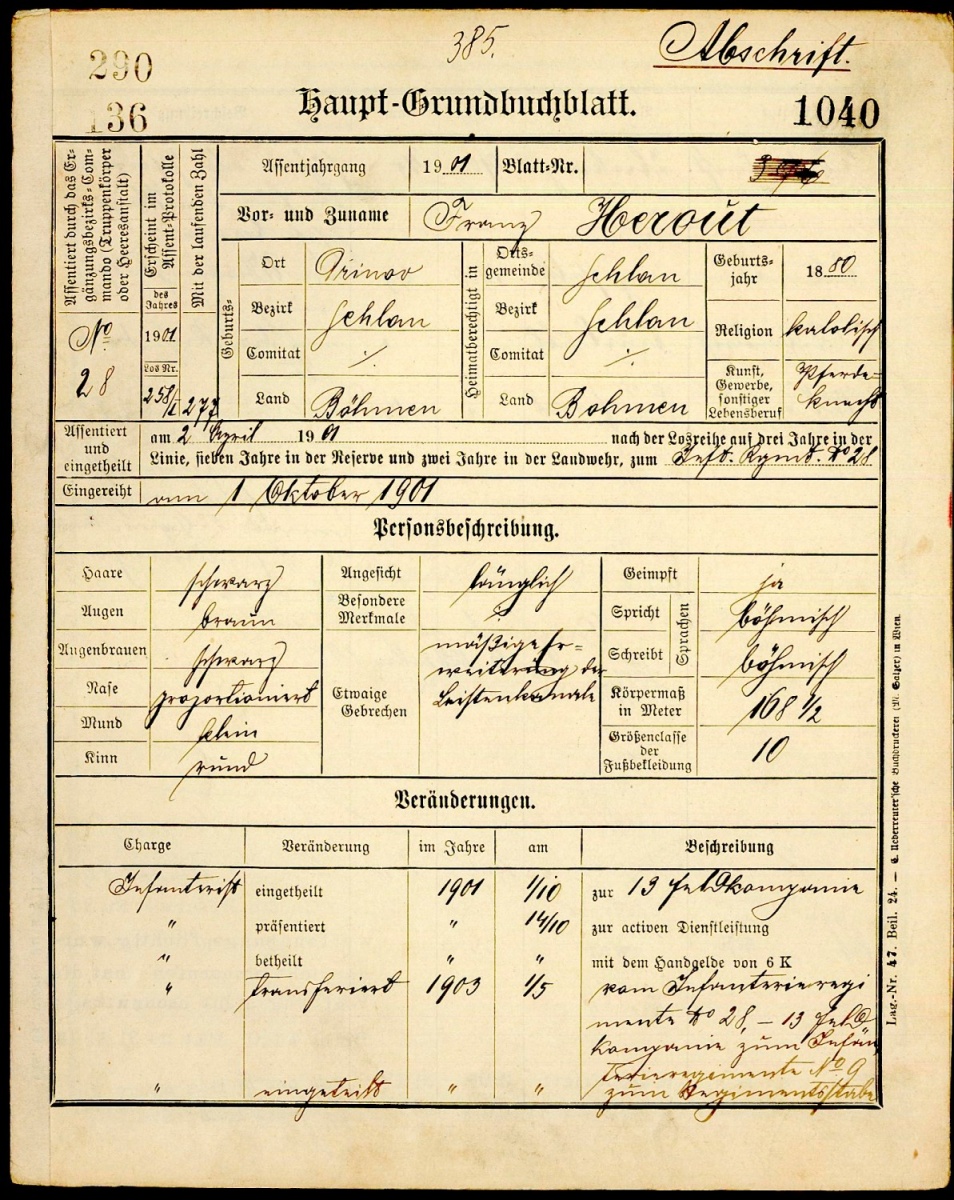 290
385.
Abschrift.
136
Haupt-Grundbuchblatt.
1040
Assentiert durch das Er-
gänzungsbezirks-Com-
mando (Truppenkörper
oder Heeresanstalt)
No
28
Erscheint im
Assent-Protokolle
des
Jahres
1901
Los Nr.
258/I
Mit der laufenden Zahl
277
Assentjahrgang 1901 Blatt-Nr.
Vor- und Zuname Franz Herout
Geburts-
Ort
Bezirk Schlan
Comitat ./.
Land Böhmen
Heimatberechtigt in
Orts-
gemeinde Schlan
Bezirk Schlan
Comitat ./.
Land Böhmen
Geburts-
jahr 1880
Religion katolisch
Kunst,
Gewerbe,
sonstiger
Lebensberuf
Pferde-
knecht
Assentiert
und
eingetheilt
am 2 April 1901 nach der Losreihe auf drei Jahre in der
Linie, sieben Jahre in der Reserve und zwei Jahre in der Landwehr, zum Inft. Rgmt. No 28
Eingereiht am 1 Oktober 1901
Personsbeschreibung.
Haare schwarz
Augen braun
Augenbrauen schwarz
Nase proportioniert
Mund klein
Kinn rund
Angesicht länglich
Besondere
Merkmale ./.
Etwaige
Gebrechen
mäßige Er-
weiterung der
Leistenkanale
Geimpft ja
Sprachen
Spricht böhmisch
Schreibt böhmisch
Körpermaß
in Meter 168 1/2
Größenclasse
der
Fußbekleidung 10
Veränderungen.
Charge Veränderung im Jahre am Beschreibung
Infanterist eingetheilt 1901 1/10 zur 13 Feldkompanie
" präsentiert " 14/10 zur activen Dienstleistung
" betheilt " " mit dem Handgelde von 6 K
" transferiert 1903 1/5 vom Infanterieregi
mente No 28, – 13 Feld
kompanie zum Infan
terieregimente No 9
" eingeteilt " " zum Regimentsstabe
Lag.-Nr. 47. Beil. 24. — C. Ueberreuter'sche Buchdruckerei (M. Salzer) in Wien.